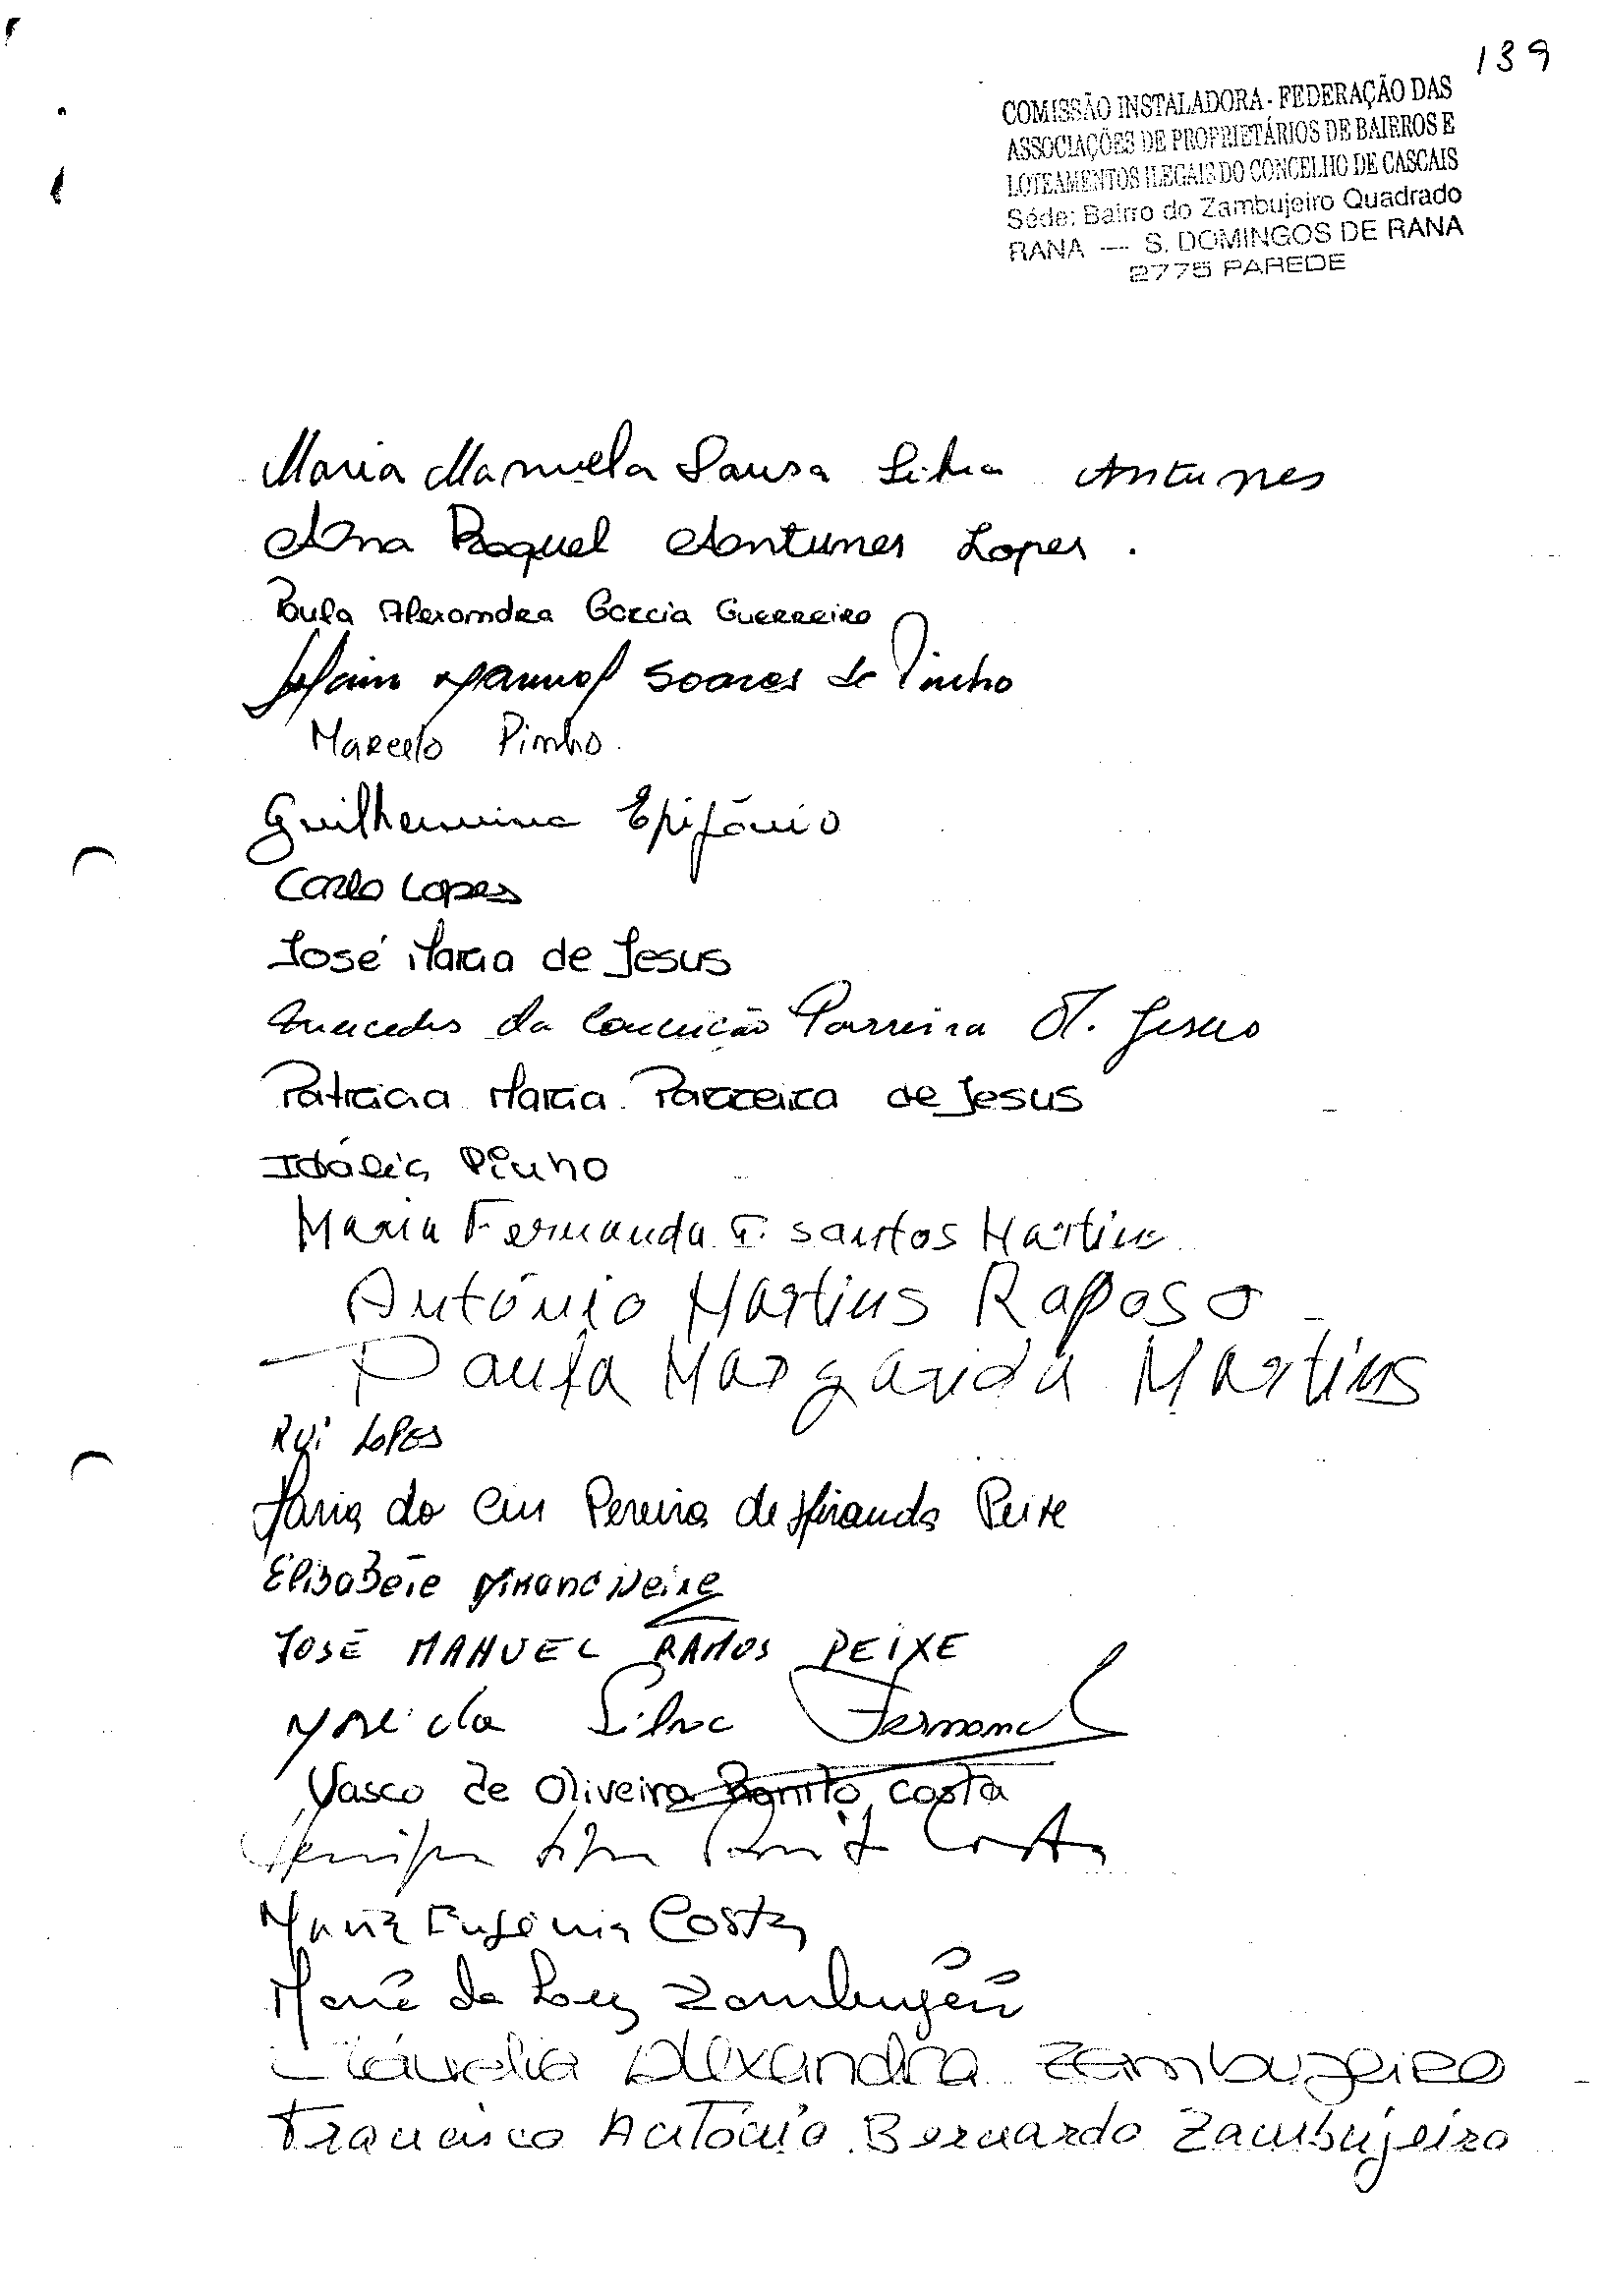 139
COMISSÃO INSTALADORA - FEDERAÇÃO DAS
ASSOCIAÇÕES DE PROPRIETÁRIOS DE BAIRROS E
LOTEAMENTOS ILEGAIS DO CONCELHO DE CASCAIS
Séde: Bairro do Zambujeiro Quadrado
RANA — S. DOMINGOS DE RANA
2775 PAREDE
Maria Manuela Sousa Silva Antunes
Ana Raquel Antunes Lopes.
Paula Alexandra Garcia Guerreiro
Manuel Soares de Pinho
Marcelo Pinho.
Guilhermina Epifânio
Carlo Lopes
José Maria de Jesus
da Conceição Parreira M. Jesus
Patricia Maria Parreira de Jesus
Idália Pinho
Maria Fernanda G. Santos Martins
António Martins Raposo
Paula Margarida Martins
Rui Lopes
Maria do Céu Pereira de Miranda Peixe
Elisabete Miranda Peixe
JOSÉ MANUEL RAMOS PEIXE
Silva Fernand
Vasco de Oliveira Bonito Costa
Costa
Maria Eugénia Costa
Maria da Luz Zambujeiro
Cláudia Alexandra Zambujeiro
Francisco António Bernardo Zambujeiro